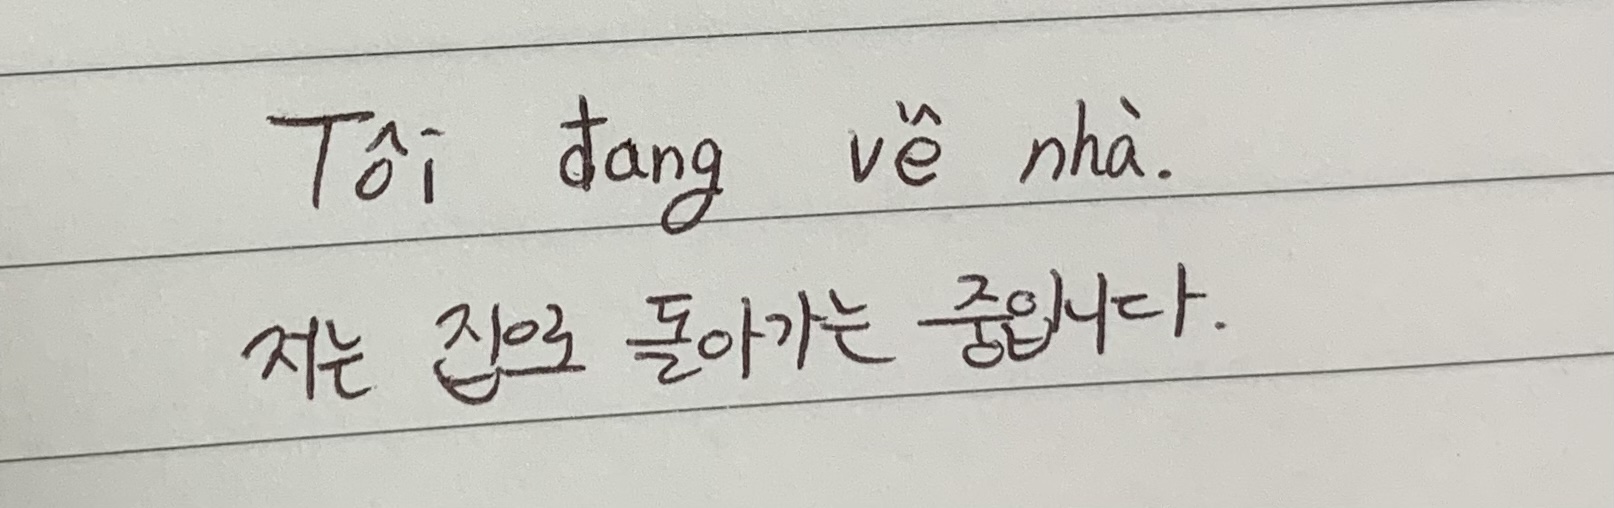 Tôi đang về nhà.
저는 집으로 돌아가는 중입니다.